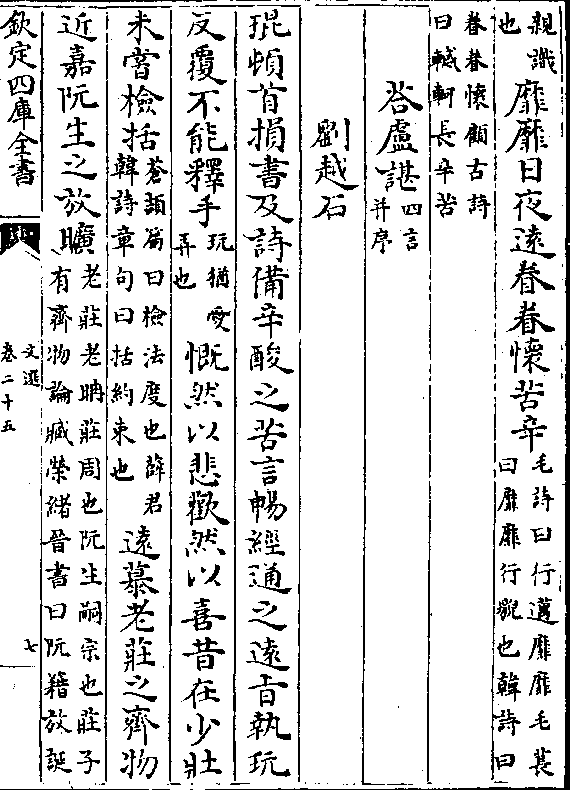 親識也靡靡日夜遠眷眷懷苦辛毛詩曰行邁靡靡毛萇曰靡靡行貌也韓詩曰
眷眷懷顧古詩曰轗軻長辛苦
荅盧諶四言并序
劉越石
琨頓首損書及詩備辛酸之苦言暢經通之遠旨執玩
反覆不能釋手玩猶愛弄也慨然以悲歡然以喜昔在少壯
未嘗檢括蒼頡篇曰檢法度也薛君韓詩章句曰括約束也遠慕老莊之齊物
近嘉阮生之放曠老莊老聃莊周也阮生嗣宗也莊子有齊物論臧榮緒晉書曰阮籍放誕
欽定四庫全書
文選
卷二十五
七